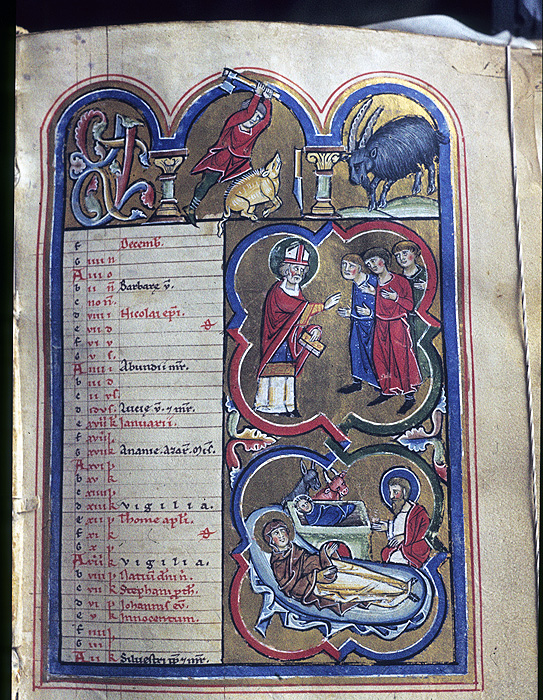 KL
f Decemb.
G iiii n
A iii o
b ii n Barbare v.
c non.
d viii i Nicolai epi.
e vii d
f vi v
g v s.
A iiii i Abundii mr.
b iii d
c ii us.
d idus. Lucie v. & mr.
e k Ianuarii.
f
G xvii k Ananie. Azar.
A xvi p
b xv k
c xiiii p
d xiii k vigilia.
e xii p Thome apli.
f xi k
g x p
A viiii k vigilia.
b viii p dni n.
c vii k Stephani
d vi p Iohannis ev.
e v k Innocentum.
f iiii
g iii
A ii k Silvestri & mr.